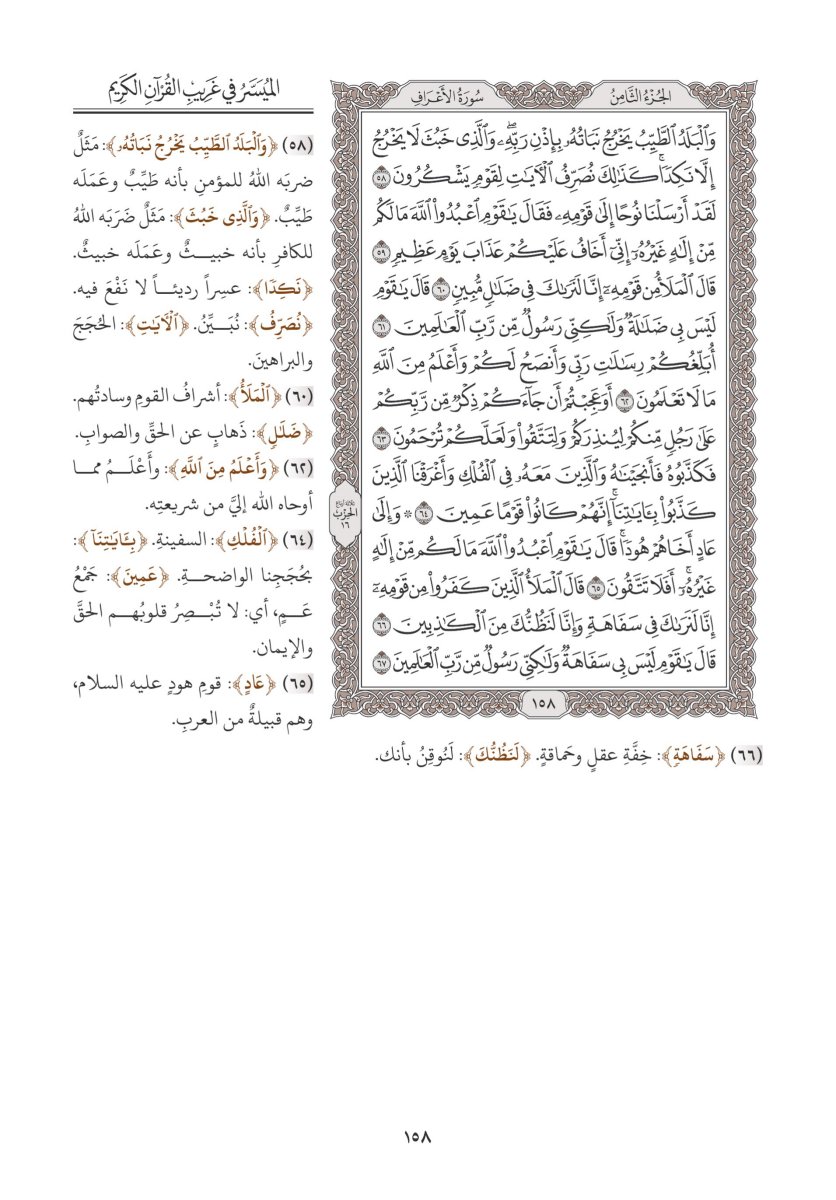 الجُزْءُ الثَّامِنُ
سُورَةُ الأَعْرَافِ
وَٱلْبَلَدُ ٱلطَّيِّبُ يَخْرُجُ نَبَاتُهُۥ بِإِذْنِ رَبِّهِۦۖ وَٱلَّذِى خَبُثَ لَا يَخْرُجُ
إِلَّا نَكِدًاۚ كَذَٰلِكَ نُصَرِّفُ ٱلْأَيَٰتِ لِقَوْمٍ يَشْكُرُونَ ٥٨
لَقَدْ أَرْسَلْنَا نُوحًا إِلَىٰ قَوْمِهِۦ فَقَالَ يَٰقَوْمِ ٱعْبُدُوا۟ ٱللَّهَ مَا لَكُم
مِّنْ إِلَٰهٍ غَيْرُهُۥٓ إِنِّىٓ أَخَافُ عَلَيْكُمْ عَذَابَ يَوْمٍ عَظِيمٍ ٥٩
قَالَ ٱلْمَلَأُ مِن قَوْمِهِۦٓ إِنَّا لَنَرَىٰكَ فِى ضَلَٰلٍ مُّبِينٍ ٦٠ قَالَ يَٰقَوْمِ
لَيْسَ بِى ضَلَٰلَةٌ وَلَٰكِنِّى رَسُولٌ مِّن رَّبِّ ٱلْعَٰلَمِينَ ٦١
أُبَلِّغُكُمْ رِسَٰلَٰتِ رَبِّى وَأَنصَحُ لَكُمْ وَأَعْلَمُ مِنَ ٱللَّهِ
مَا لَا تَعْلَمُونَ ٦٢ أَوَعَجِبْتُمْ أَن جَآءَكُمْ ذِكْرٌ مِّن رَّبِّكُمْ
عَلَىٰ رَجُلٍ مِّنكُمْ لِيُنذِرَكُمْ وَلِتَتَّقُوا۟ وَلَعَلَّكُمْ تُرْحَمُونَ ٦٣
فَكَذَّبُوهُ فَأَنجَيْنَٰهُ وَٱلَّذِينَ مَعَهُۥ فِى ٱلْفُلْكِ وَأَغْرَقْنَا ٱلَّذِينَ
كَذَّبُوا۟ بِـَٔايَٰتِنَآۚ إِنَّهُمْ كَانُوا۟ قَوْمًا عَمِينَ ٦٤ ۞ وَإِلَىٰ
عَادٍ أَخَاهُمْ هُودًاۚ قَالَ يَٰقَوْمِ ٱعْبُدُوا۟ ٱللَّهَ مَا لَكُم مِّنْ إِلَٰهٍ
غَيْرُهُۥٓۚ أَفَلَا تَتَّقُونَ ٦٥ قَالَ ٱلْمَلَأُ ٱلَّذِينَ كَفَرُوا۟ مِن قَوْمِهِۦٓ
إِنَّا لَنَرَىٰكَ فِى سَفَاهَةٍ وَإِنَّا لَنَظُنُّكَ مِنَ ٱلْكَٰذِبِينَ ٦٦
قَالَ يَٰقَوْمِ لَيْسَ بِى سَفَاهَةٌ وَلَٰكِنِّى رَسُولٌ مِّن رَّبِّ ٱلْعَٰلَمِينَ ٦٧
ثلاثة أرباع
الحِزْب
١٦
١٥٨
المُيَسَّرُ في غَرِيبِ القُرْآنِ الكَرِيم
(٥٨) ﴿وَٱلْبَلَدُ ٱلطَّيِّبُ يَخْرُجُ نَبَاتُهُۥ﴾: مَثَلٌ
ضربَه اللهُ للمؤمنِ بأنه طَيِّبٌ وعَمَلَه
طَيِّبٌ. ﴿وَٱلَّذِى خَبُثَ﴾: مَثَلٌ ضَرَبَه اللهُ
للكافرِ بأنه خبيثٌ وعَمَلَه خبيثٌ.
﴿نَكِدًا﴾: عسِراً رديئاً لا نَفْعَ فيه.
﴿نُصَرِّفُ﴾: نُبَيِّنُ. ﴿ٱلْأَيَٰتِ﴾: الحُجَجَ
والبراهينَ.
(٦٠) ﴿ٱلْمَلَأُ﴾: أشرافُ القومِ وسادتُهم.
﴿ضَلَٰلٍ﴾: ذَهابٍ عن الحقِّ والصوابِ.
(٦٢) ﴿وَأَعْلَمُ مِنَ ٱللَّهِ﴾: وأَعْلَمُ مما
أوحاه الله إليَّ من شريعتِه.
(٦٤) ﴿ٱلْفُلْكِ﴾: السفينةِ. ﴿بِـَٔايَٰتِنَآ﴾:
بحُجَجِنا الواضحةِ. ﴿عَمِينَ﴾: جَمْعُ
عَمٍ، أي: لا تُبْصِرُ قلوبُهم الحقَّ
والإيمان.
(٦٥) ﴿عَادٍ﴾: قومِ هودٍ عليه السلام،
وهم قبيلةٌ من العربِ.
(٦٦) ﴿سَفَاهَةٍ﴾: خِفَّةِ عقلٍ وحَماقةٍ. ﴿لَنَظُنُّكَ﴾: لَنُوقِنُ بأنك.
١٥٨